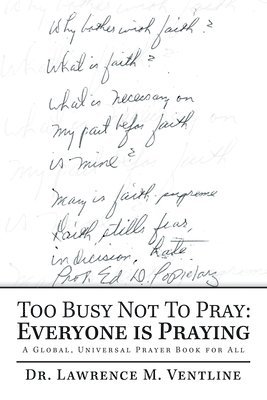 Why bother with faith?
What is faith?
What is necessary on
my part before faith
is mine?
Mary is faith supreme
Faith stills fear,
indecision, hate.
Prof. Ed D. Popielarz
Too Busy Not To Pray:
Everyone is Praying
A Global, Universal Prayer Book for All
Dr. Lawrence M. Ventline